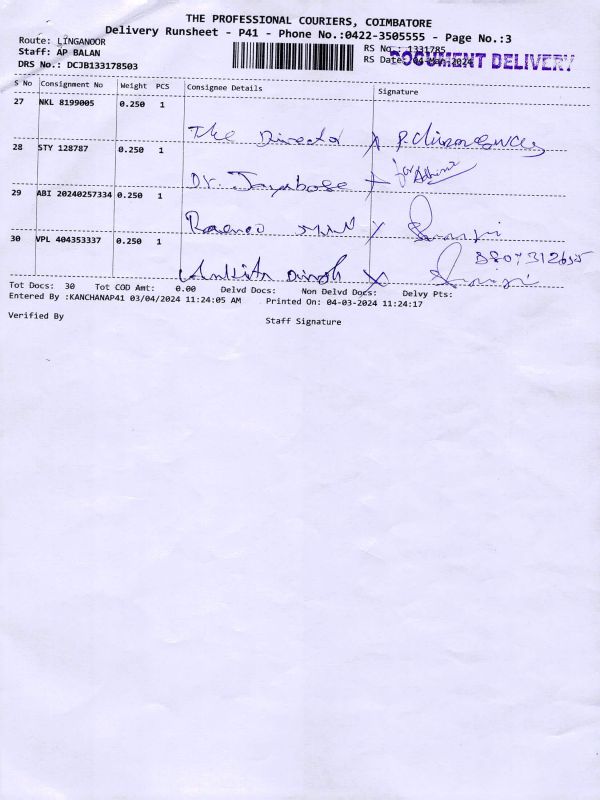 THE PROFESSIONAL COURIERS, COIMBATORE
Delivery Runsheet - P41 - Phone No.:0422-3505555 - Page No.:3
Route: LINGANOOR
Staff: AP BALAN
DRS No.: DCJB133178503
RS No.: 1331785
RS Date: 04-Mar-2024
DOCUMENT DELIVERY
S No Consignment No Weight PCS Consignee Details Signature
27 NKL 8199005 0.250 1
The Director X
28 STY 128787 0.250 1
Dr. Jayabose X for
29 ABI 20240257334 0.250 1
X
30 VPL 404353337 0.250 1
Ankita Singh X
Tot Docs: 30 Tot COD Amt: 0.00 Delvd Docs: Non Delvd Docs: Delvy Pts:
Entered By :KANCHANAP41 03/04/2024 11:24:05 AM Printed On: 04-03-2024 11:24:17
Verified By Staff Signature